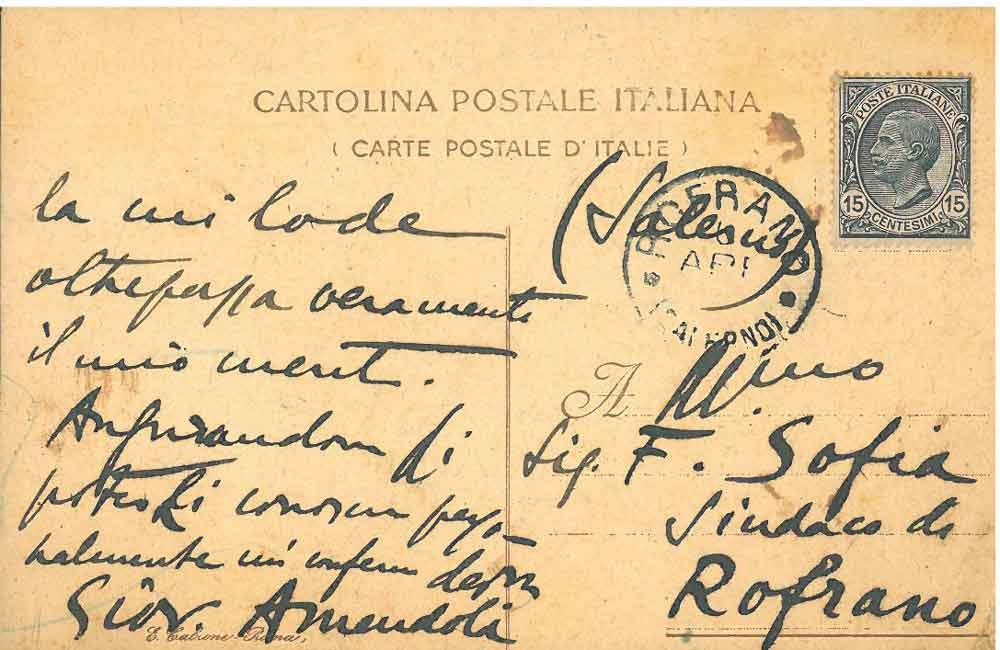 CARTOLINA POSTALE ITALIANA
( CARTE POSTALE D'ITALIE )
POSTE ITALIANE
15 CENTESIMI 15
(Salerno)
APR
la mi lode
oltrepassa veramente
il mio merit.
Augurandom di
poterLi conoscer perso
nalmente mi conferm
Giov. Amendola
A Ill.mo
Sig. F. Sofia
Sindaco di
Rofrano
E. Calzone - Roma